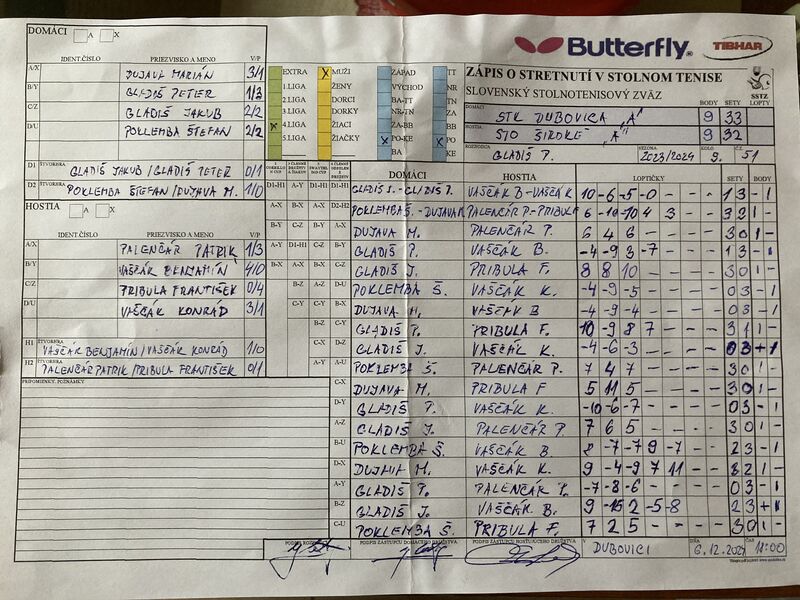 DOMÁCI A X
IDENT.ČÍSLO PRIEZVISKO A MENO V/P
A/X DUJAVA MARIÁN 3/1
B/Y GLADIŠ PETER 1/3
C/Z GLADIŠ JAKUB 2/2
D/U POKLEMBA ŠTEFAN 2/2
D1 ŠTVORHRA GLADIŠ JAKUB/GLADIŠ PETER 0/1
D2 ŠTVORHRA POKLEMBA ŠTEFAN/DUJAVA M. 1/0
HOSTIA A X
IDENT.ČÍSLO PRIEZVISKO A MENO V/P
A/X PALENČÁR PATRIK 1/3
B/Y VAŠČÁK BENJAMÍN 4/0
C/Z PRIBULA FRANTIŠEK 0/4
D/U VAŠČÁK KONRÁD 3/1
H1 ŠTVORHRA VAŠČÁK BENJAMÍN/VAŠČÁK KONRÁD 1/0
H2 ŠTVORHRA PALENČÁR PATRIK/PRIBULA FRANTIŠEK 0/1
PRIPOMIENKY, POZNÁMKY
EXTRA
1.LIGA
2.LIGA
3.LIGA
4.LIGA
5.LIGA
X MUŽI
ŽENY
DORCI
DORKY
ŽIACI
ŽIAČKY
ZÁPAD
VÝCHOD
BA-TT
NR-TN
ZA-BB
X PO-KE
BA
TT
NR
TN
ZA
BB
X PO
KE
Butterfly
TIBHAR
ZÁPIS O STRETNUTÍ V STOLNOM TENISE
SLOVENSKÝ STOLNOTENISOVÝ ZVÄZ
SSTZ
DOMÁCI STK DUBOVICA "A" BODY 9 SETY 33 LOPTY
HOSTIA STO ŠIROKÉ "A" 9 32
ROZHODCA GLADIŠ P. SEZONA 2023/2024 KOLO 9. Č. 51
DOMÁCI HOSTIA LOPTIČKY SETY BODY
D1-H1 GLADIŠ J.-GLADIŠ P. VAŠČÁK B-VAŠČÁK K. 10 -6 -5 -0 - - - 1 3 - 1
POKLEMBA Š. - DUJAVA M. PALENČÁR P.-PRIBULA 6 -10 -10 4 3 - - 3 2 1 -
DUJAVA M. PALENČÁR P. 6 4 6 - - - - 3 0 1 -
GLADIŠ P. VAŠČÁK B. -4 -9 3 -7 - - - 1 3 - 1
GLADIŠ J. PRIBULA F. 8 8 10 - - - - 3 0 1 -
POKLEMBA Š. VAŠČÁK K. -4 -9 -5 - - - - 0 3 - 1
DUJAVA M. VAŠČÁK B -4 -9 -4 - - - - 0 3 - 1
GLADIŠ P. PRIBULA F. 10 -9 8 7 - - - 3 1 1 -
GLADIŠ J. VAŠČÁK K. -4 -6 -3 - - - - 0 3 + 1
POKLEMBA Š. PALENČÁR P. 7 4 7 - - - - 3 0 1 -
C-X DUJAVA M. PRIBULA F 5 11 5 - - - - 3 0 1 -
D-Y GLADIŠ P. VAŠČÁK K. -10 -6 -7 - - - - 0 3 - 1
A-Z GLADIŠ J. PALENČÁR P. 7 6 5 - - - - 3 0 1 -
B-U POKLEMBA Š. VAŠČÁK B. 8 -7 -7 9 -7 - - 2 3 - 1
D-X DUJAVA M. VAŠČÁK K. 9 -4 -9 7 11 - - 3 2 1 -
A-Y GLADIŠ P. PALENČÁR P. -7 -8 -6 - - - - 0 3 - 1
B-Z GLADIŠ J. VAŠČÁK B. 9 -15 2 -5 -8 - - 2 3 + 1
C-U POKLEMBA Š. PRIBULA F. 7 2 5 - - - - 3 0 1 -
PODPIS ZÁSTUPCU DOMÁCEHO DRUŽSTVA PODPIS ZÁSTUPCU HOSŤUJÚCEHO DRUŽSTVA V DUBOVICI DŇA 6.12.2023 ČAS 17:00